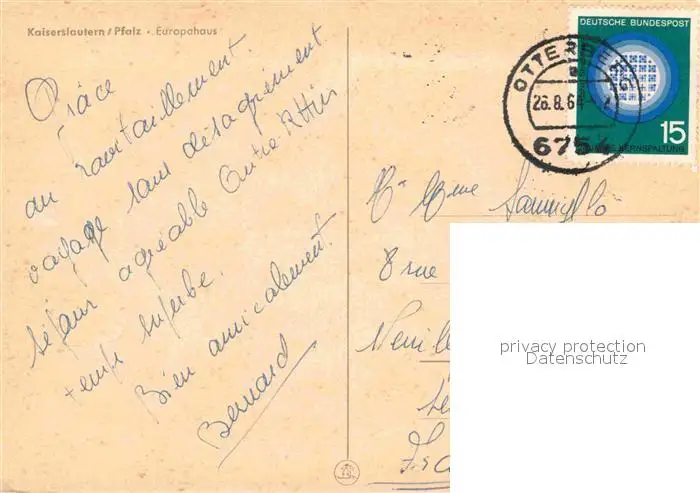 Kaiserslautern / Pfalz • Europahaus
Grâce
au ravitaillement.
voyage sans désagrément
séjour agréable Outre-Rhin
temps superbe.
Bien amicalement.
Bernard
DEUTSCHE BUNDESPOST
15
KERNSPALTUNG
OTTERBERG
26.8.64
6754
Mme
8 rue
privacy protection
Datenschutz